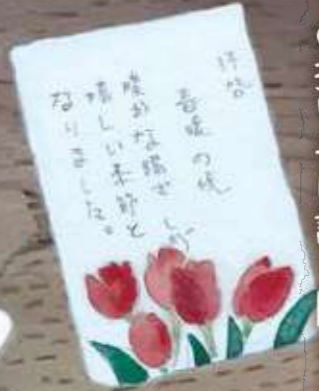 拝啓
春暖の候
暖かな陽ざしが
嬉しい季節と
なりました。